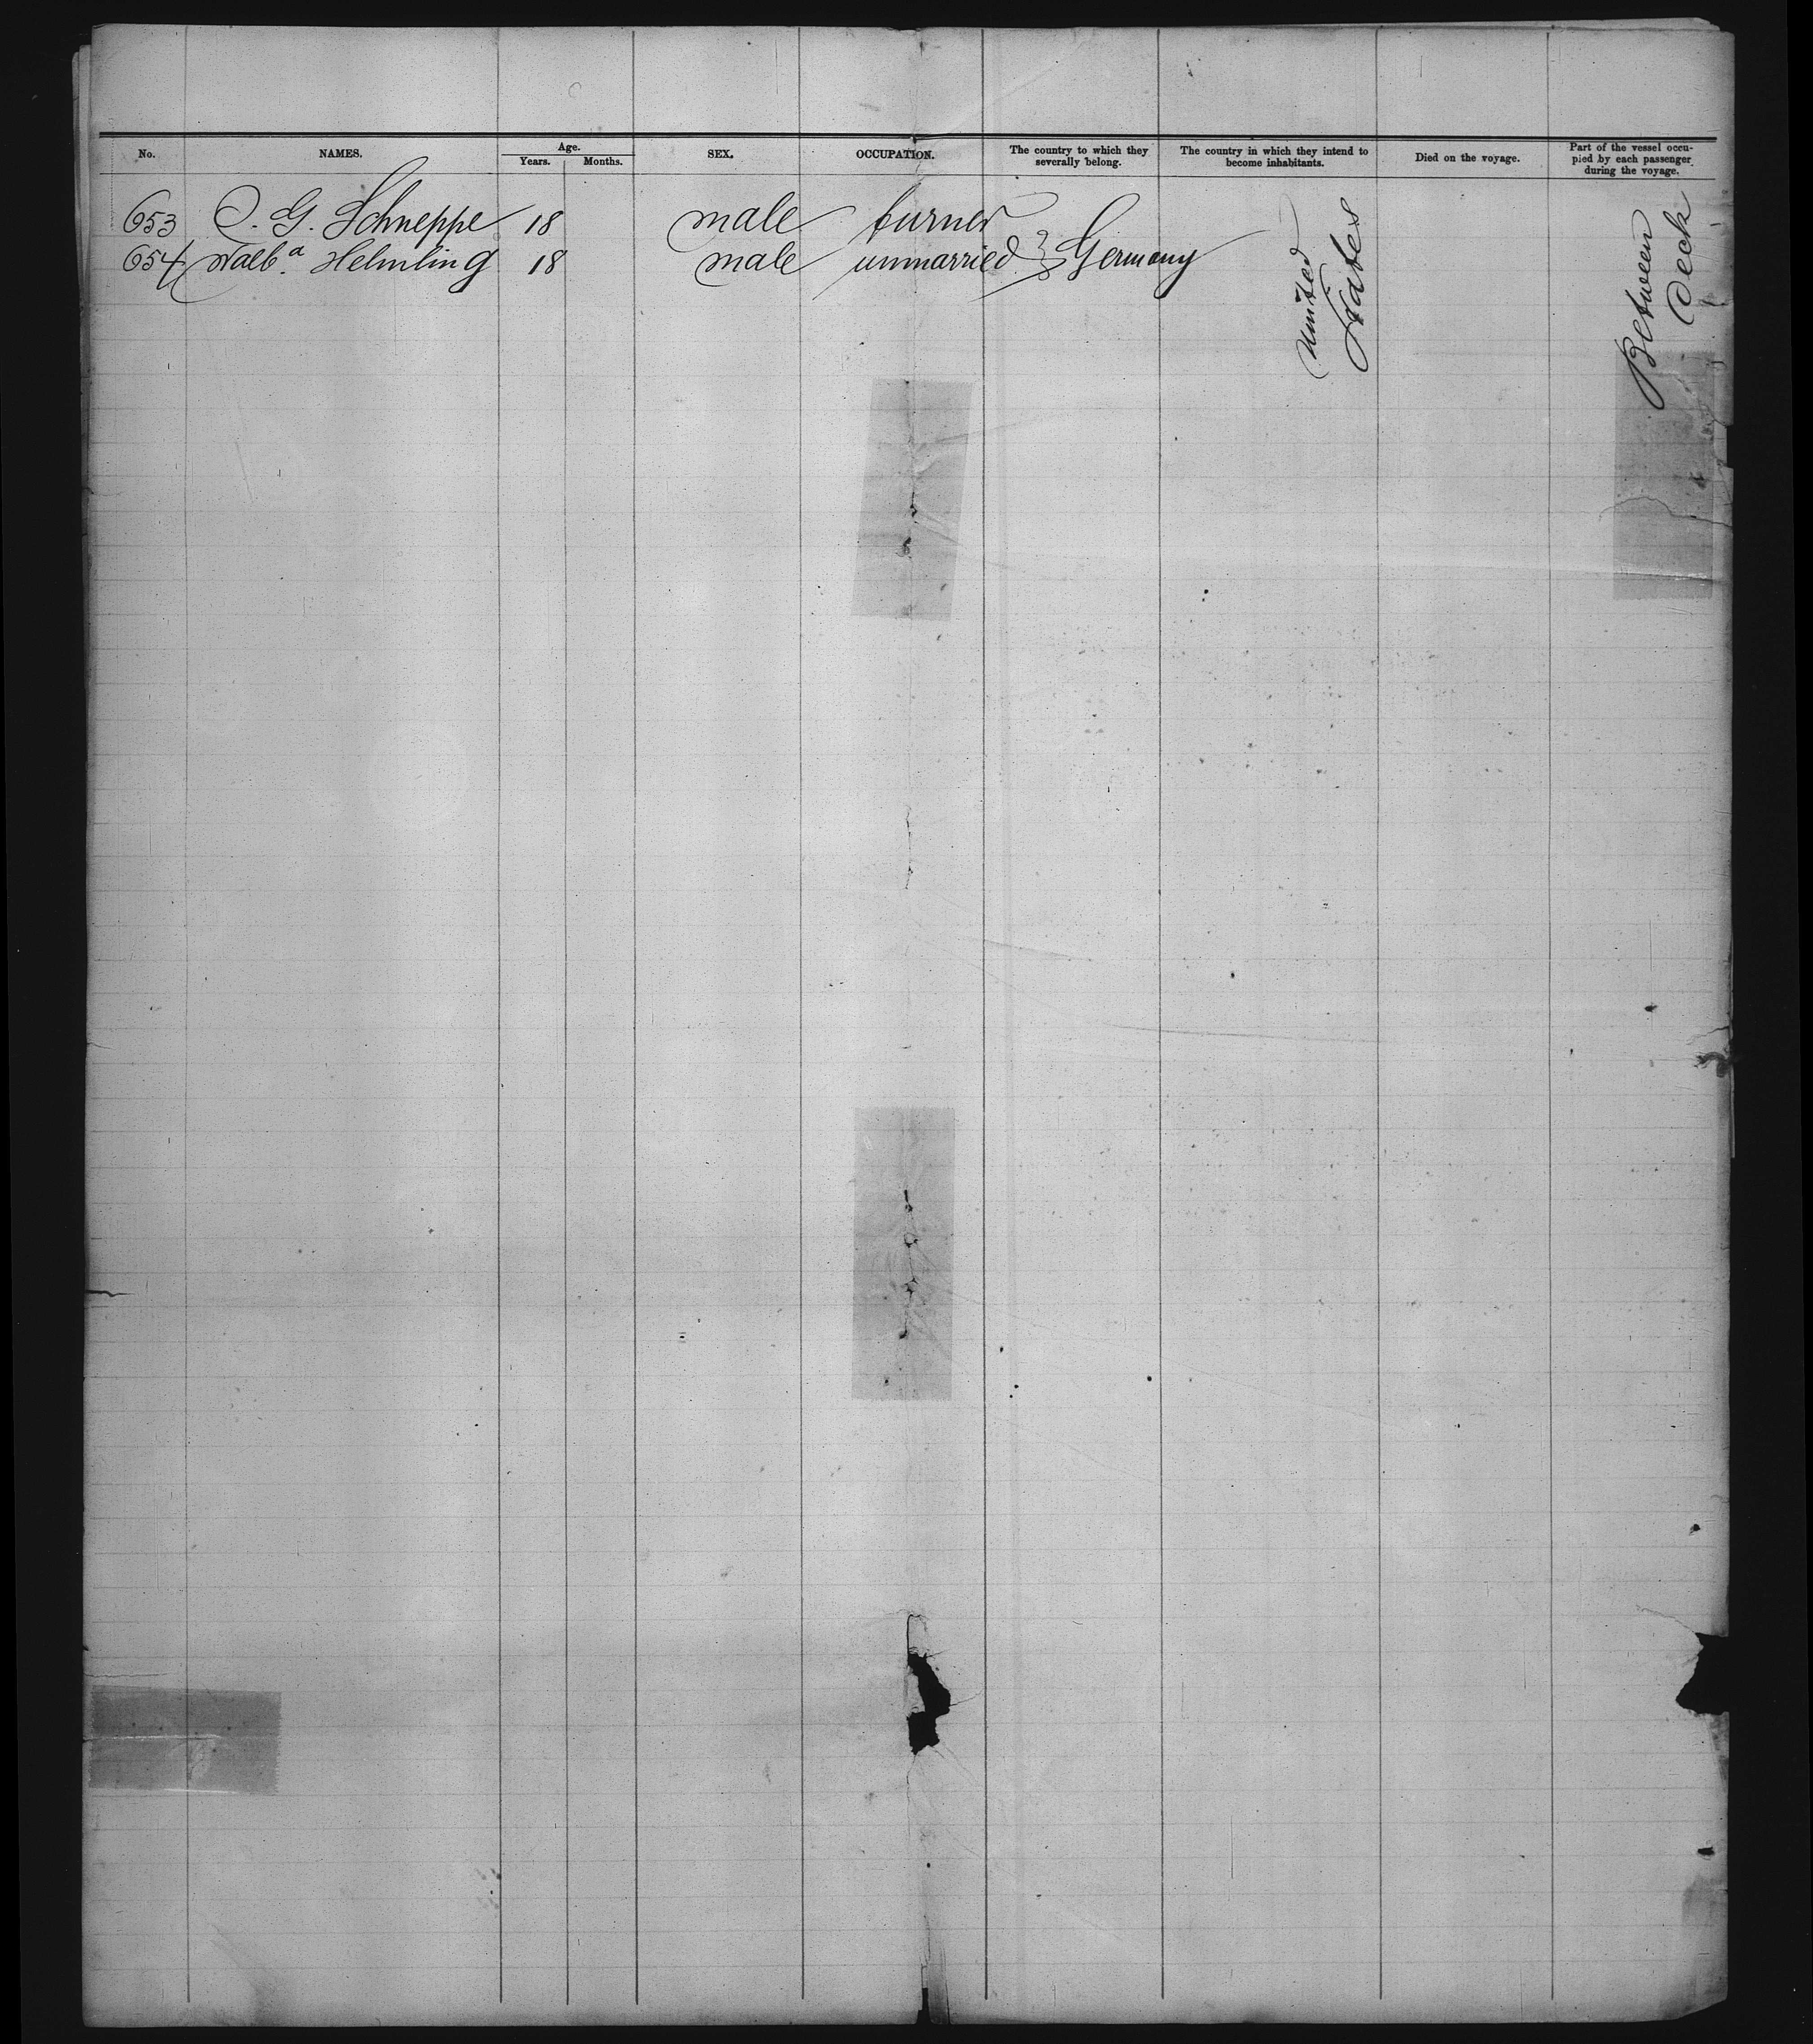 No. NAMES. Age. SEX. OCCUPATION. The country to which they severally belong. The country in which they intend to become inhabitants. Died on the voyage. Part of the vessel occu-pied by each passenger during the voyage.
Years. Months.
653 G. Schneppe 18 male turner
654 Walb.a Helmling 18 male unmarried } Germany
United States
Between Deck